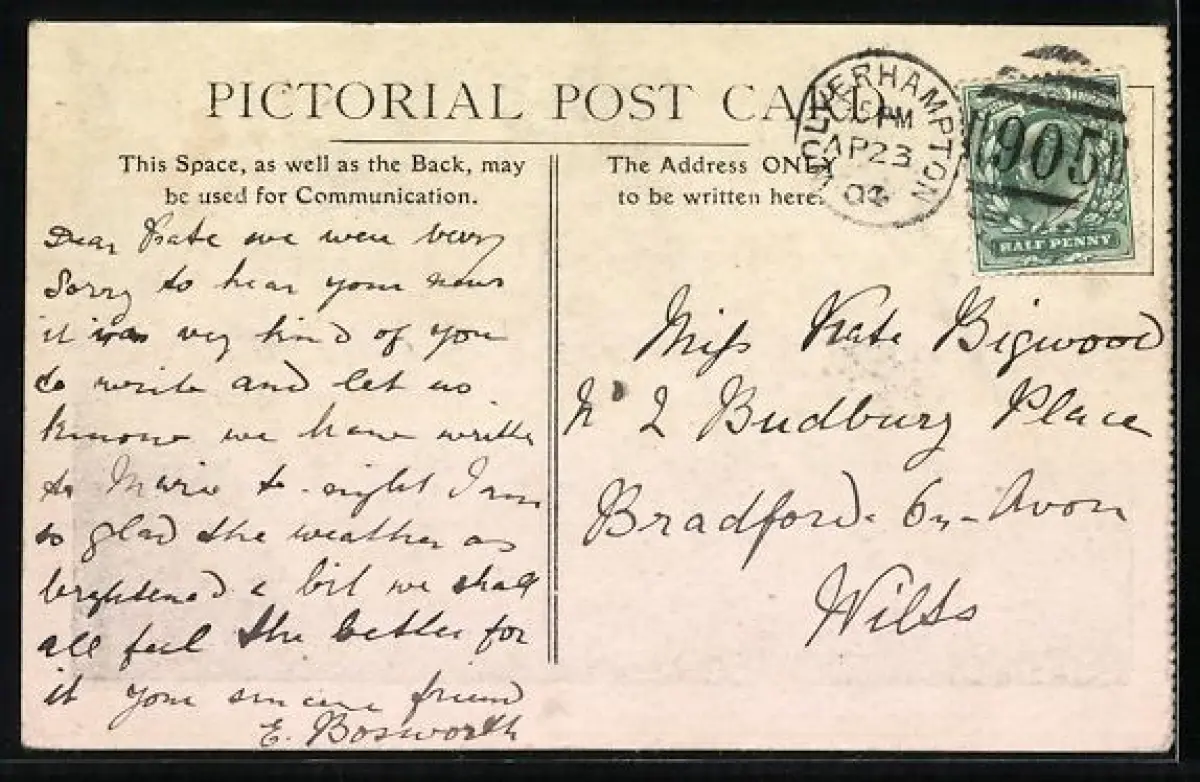 PICTORIAL POST CARD
This Space, as well as the Back, may
be used for Communication.
The Address ONLY
to be written here.
WOLVERHAMPTON
PM
AP 23
905
HALF PENNY
Dear Kate we were very
Sorry to hear your news
it was very kind of you
to write and let us
know we have written
to to-night I am
so glad the weather as
brightened a bit we shall
all feel the better for
it your sincere friend
E. Bosworth
Miss Kate Bigwood
No 2 Budbury Place
Bradford-on-Avon
Wilts